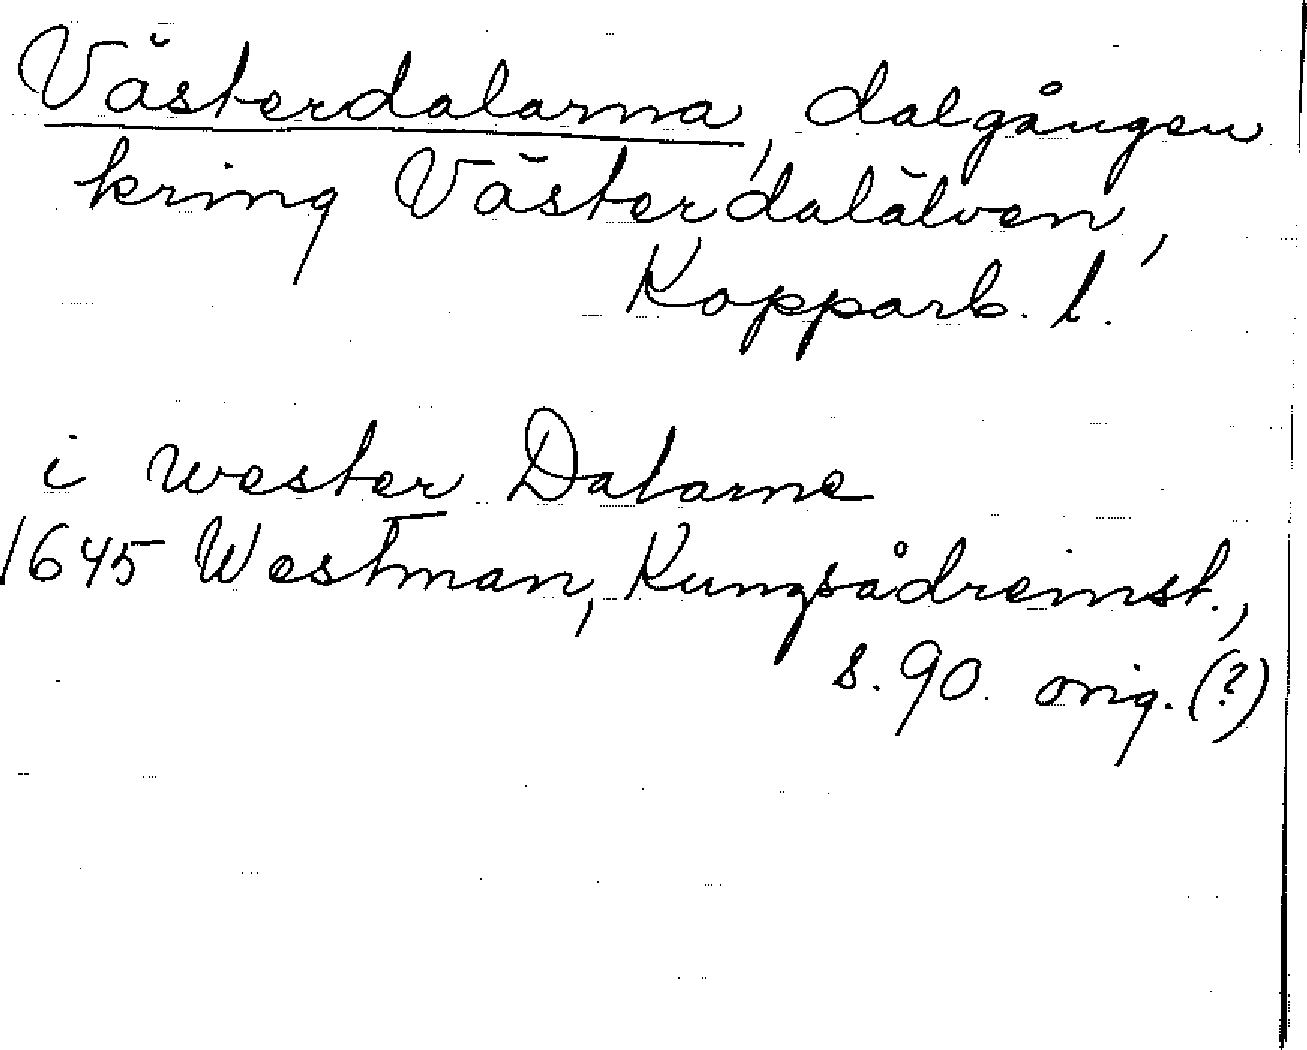 Västerdalarna, dalgången
kring Västerdalälven,
Kopparb. l.
i wester Dalarne
1645 Westman, Kungsådreinst.,
s. 90. orig. (?)